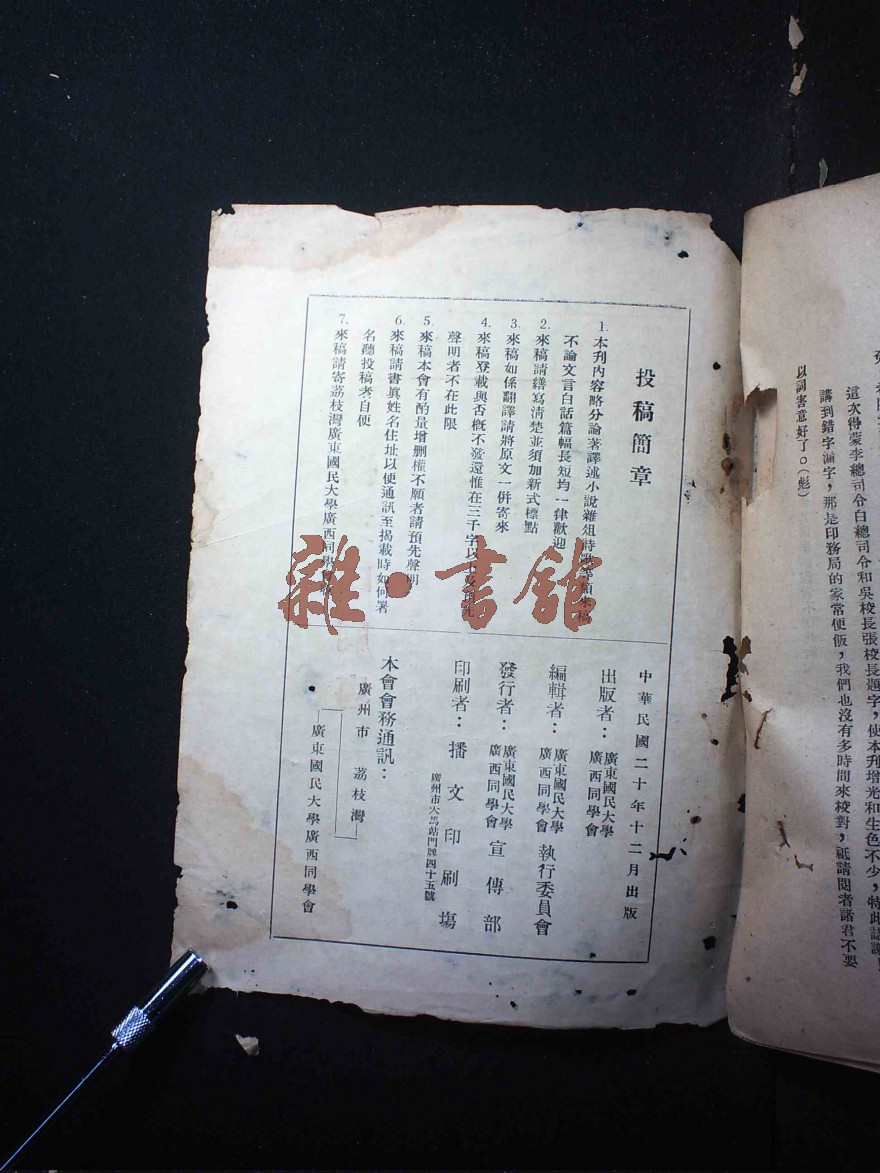 這次得蒙李總司令白總司令和吳校長張校長題字，使本刋增光和生色不少，特此誌謝
講到錯字漏字，那是印務局的家常便飯，我們也沒有多時間來校對，祇請閱者諸君不要
以詞害意好了。（彪）
投稿簡章
1. 本刋內容略分論著譯述小說雜俎詩 來稿
不論文言白話篇幅長短均一律歡迎
2. 來稿請繕寫淸楚並須加新式標點
3. 來稿如係翻譯請將原文一併寄來
4. 來稿登載與否槪不發還惟在三千字以 先
聲明者不在此限
5. 來稿本會有酌量增删權不願者請預先聲明
6. 來稿請書眞姓名住址以便通訊至揭載時如何署
名聽投稿者自便
7. 來稿請寄荔枝灣廣東國民大學廣西同學會
中華民國二十年十二月出版
出版者：廣東國民大學廣西同學會
編輯者：廣東國民大學廣西同學會執行委員會
發行者：廣東國民大學廣西同學會宣傳部
印刷者：播文印刷塲
廣州市大馬站門牌四十五號
本會會務通訊：
廣州市 荔枝灣
廣東國民大學廣西同學會
雜·書館